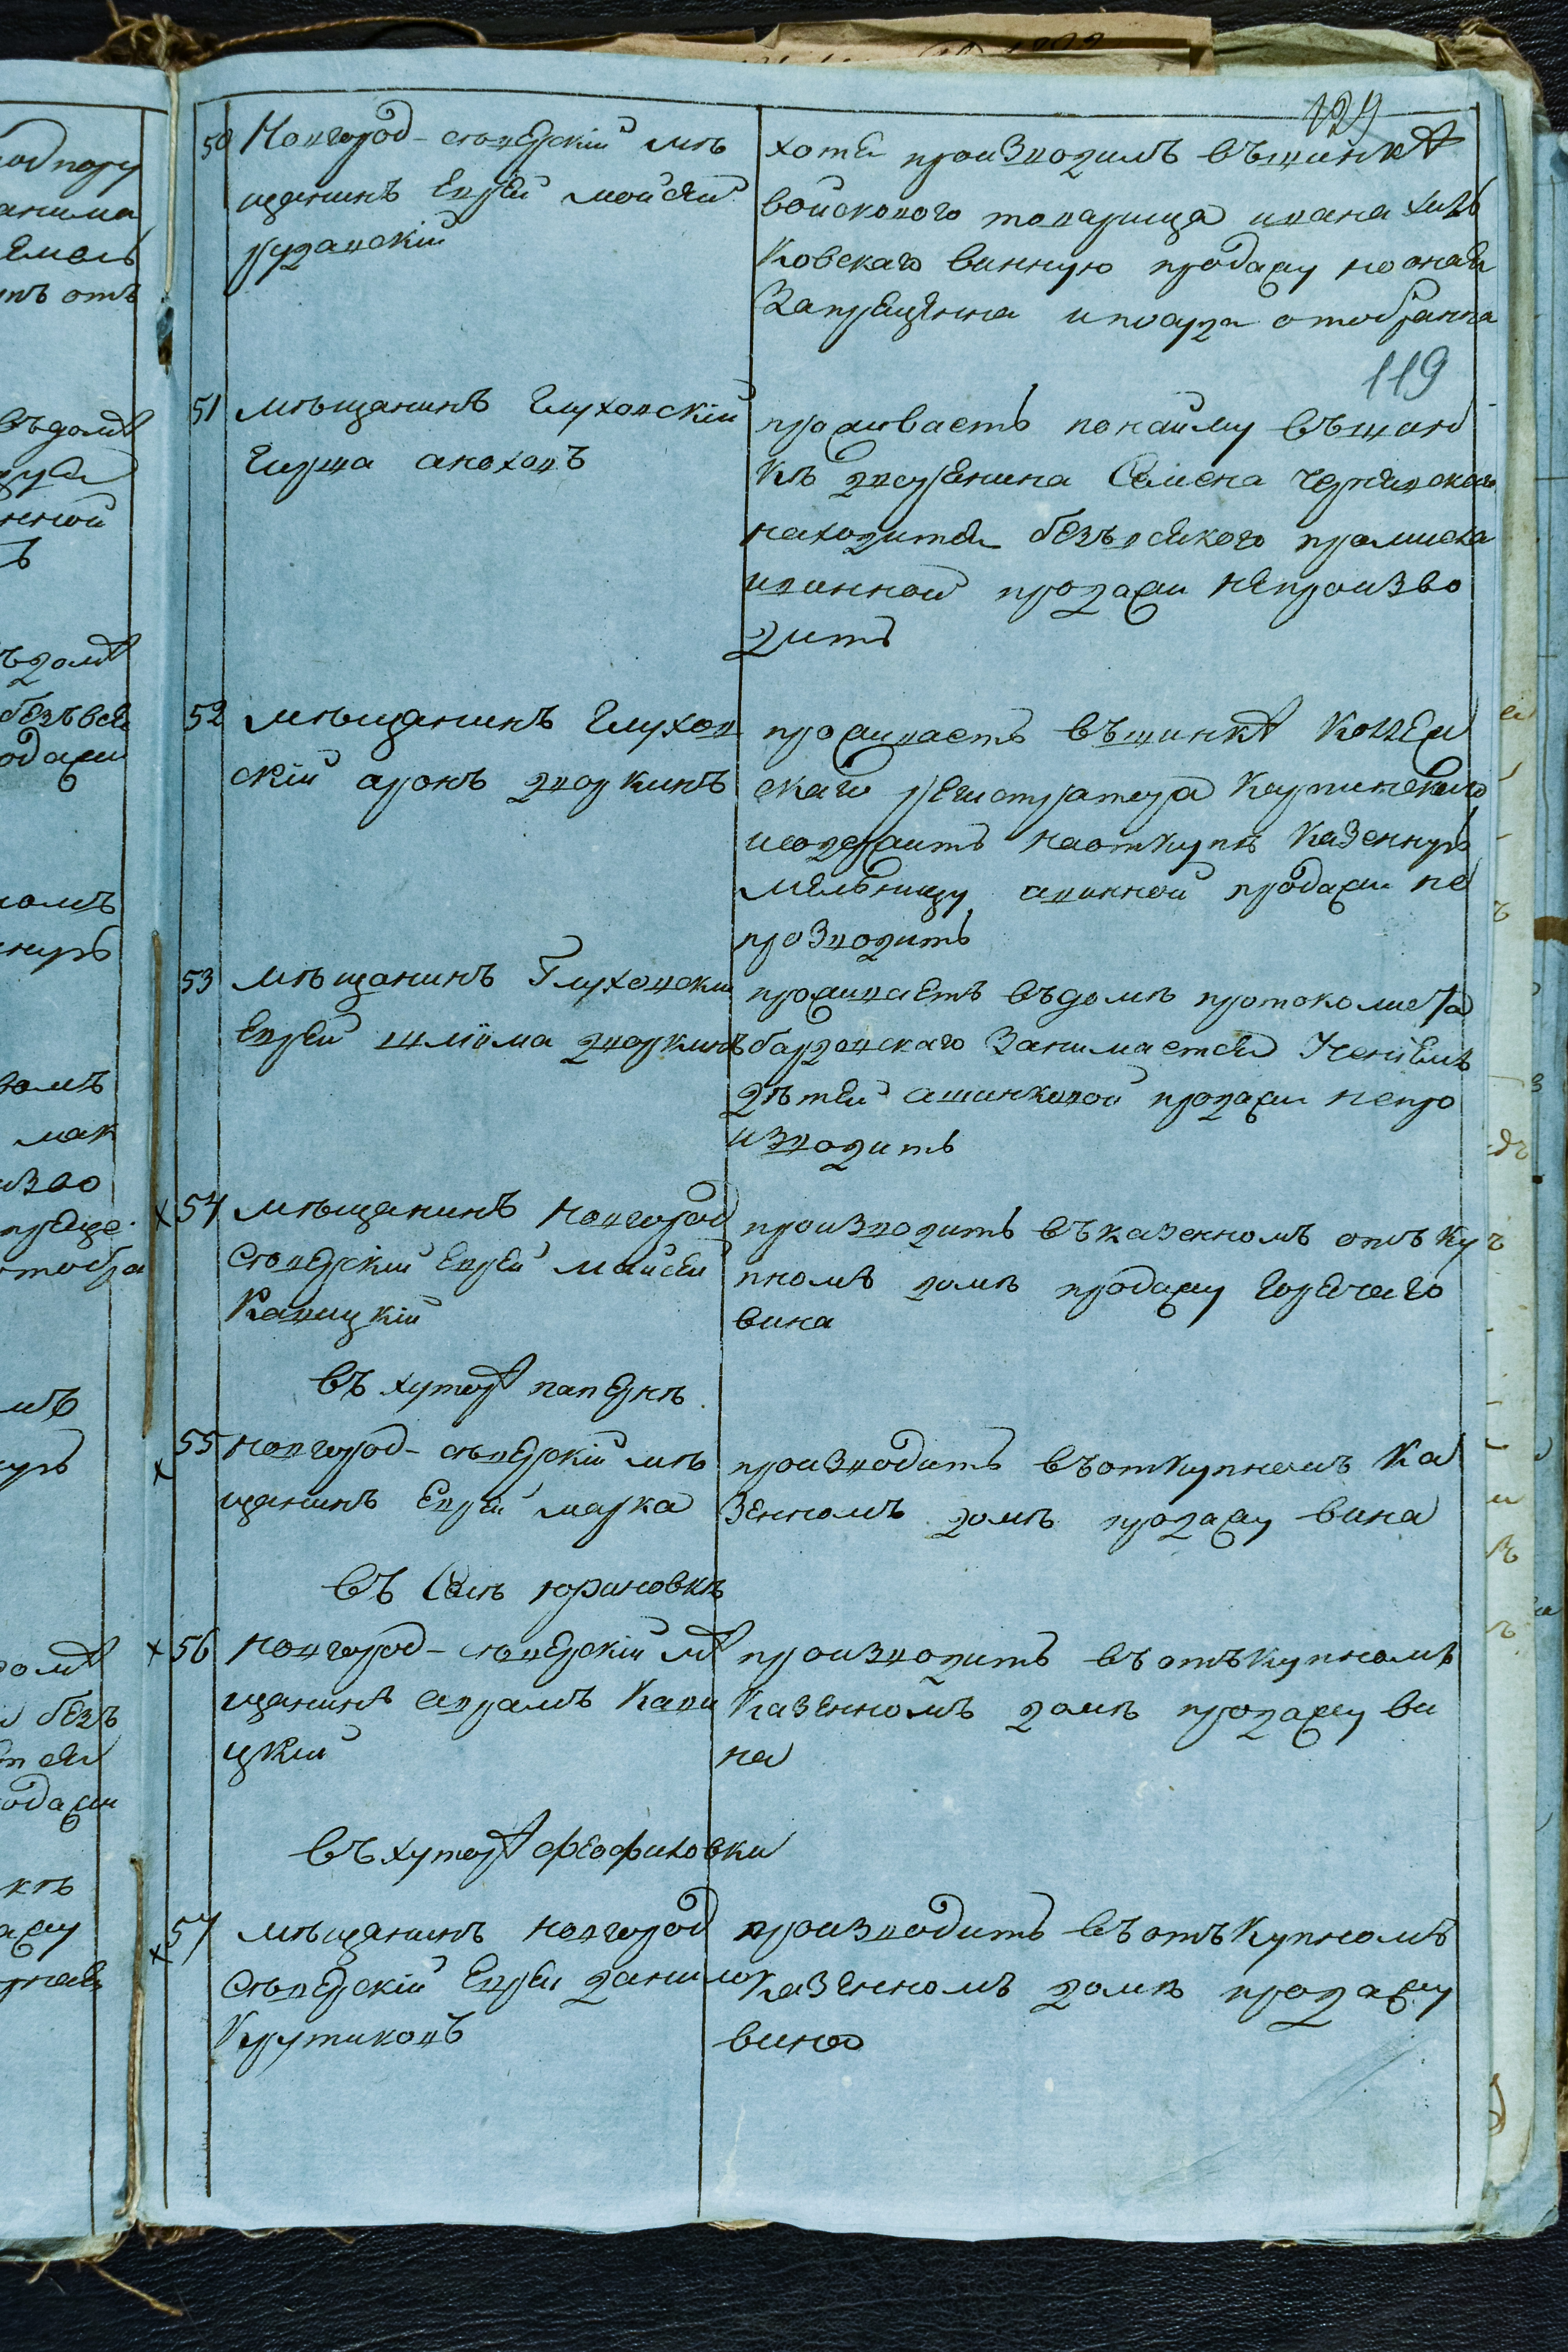 129
50 Новгород-сѣверскій мѣ
щанинъ Еврей мойсей
рудавскій
хотя производилъ въшинкѣ
войскового товарища ивана хиж
ковскаго винную продажу но оная
Запрещенна и отобранна
119
51 мѣщанинъ Глуховскій
Гирша аноховъ
проживаетъ понайму въшин
кѣ дворянина Семена
находится безъвсякого промисла
ивинной продажи непроизво
дитъ
52 мѣщанинъ Глухов
скій аронъ дворкинъ
проживаетъ въшинкѣ коллеж
скаго регистратора
исодержитъ наоткупѣ казенную
мельницу авинной продажи не
прозводитъ
53 мѣщанинъ Глуховский
Еврей шліома дворкинъ
проживаетъ въдомѣ протоколиста
занимается Ученіемъ
дѣтей ашинковой продажи непро
изводитъ
54 мѣщанинъ Новгород
сѣверскій Еврей Мойсей
Кавицкій
производитъ въказенномъ отъку
пномъ домѣ продажу горячаго
вина
въ хуторѣ папернѣ
55 новгород-сѣверскій мѣ
щанинъ Еврей марка
производитъ въоткупномъ Ка
зенномъ домѣ продажу вина
въ Селѣ юриновкѣ
56 Новгород-сѣверскій мѣ
щанинъ аврамъ Кави
цкій
производитъ въ отъкупномъ
Казенномъ домѣ продажу ви
на
въ хуторѣ феофиловки
57 мѣщанинъ новгород
сѣверскій Еврей данило
Крутиковъ
производитъ въ отъкупномъ
Казенномъ домѣ продажу
вина